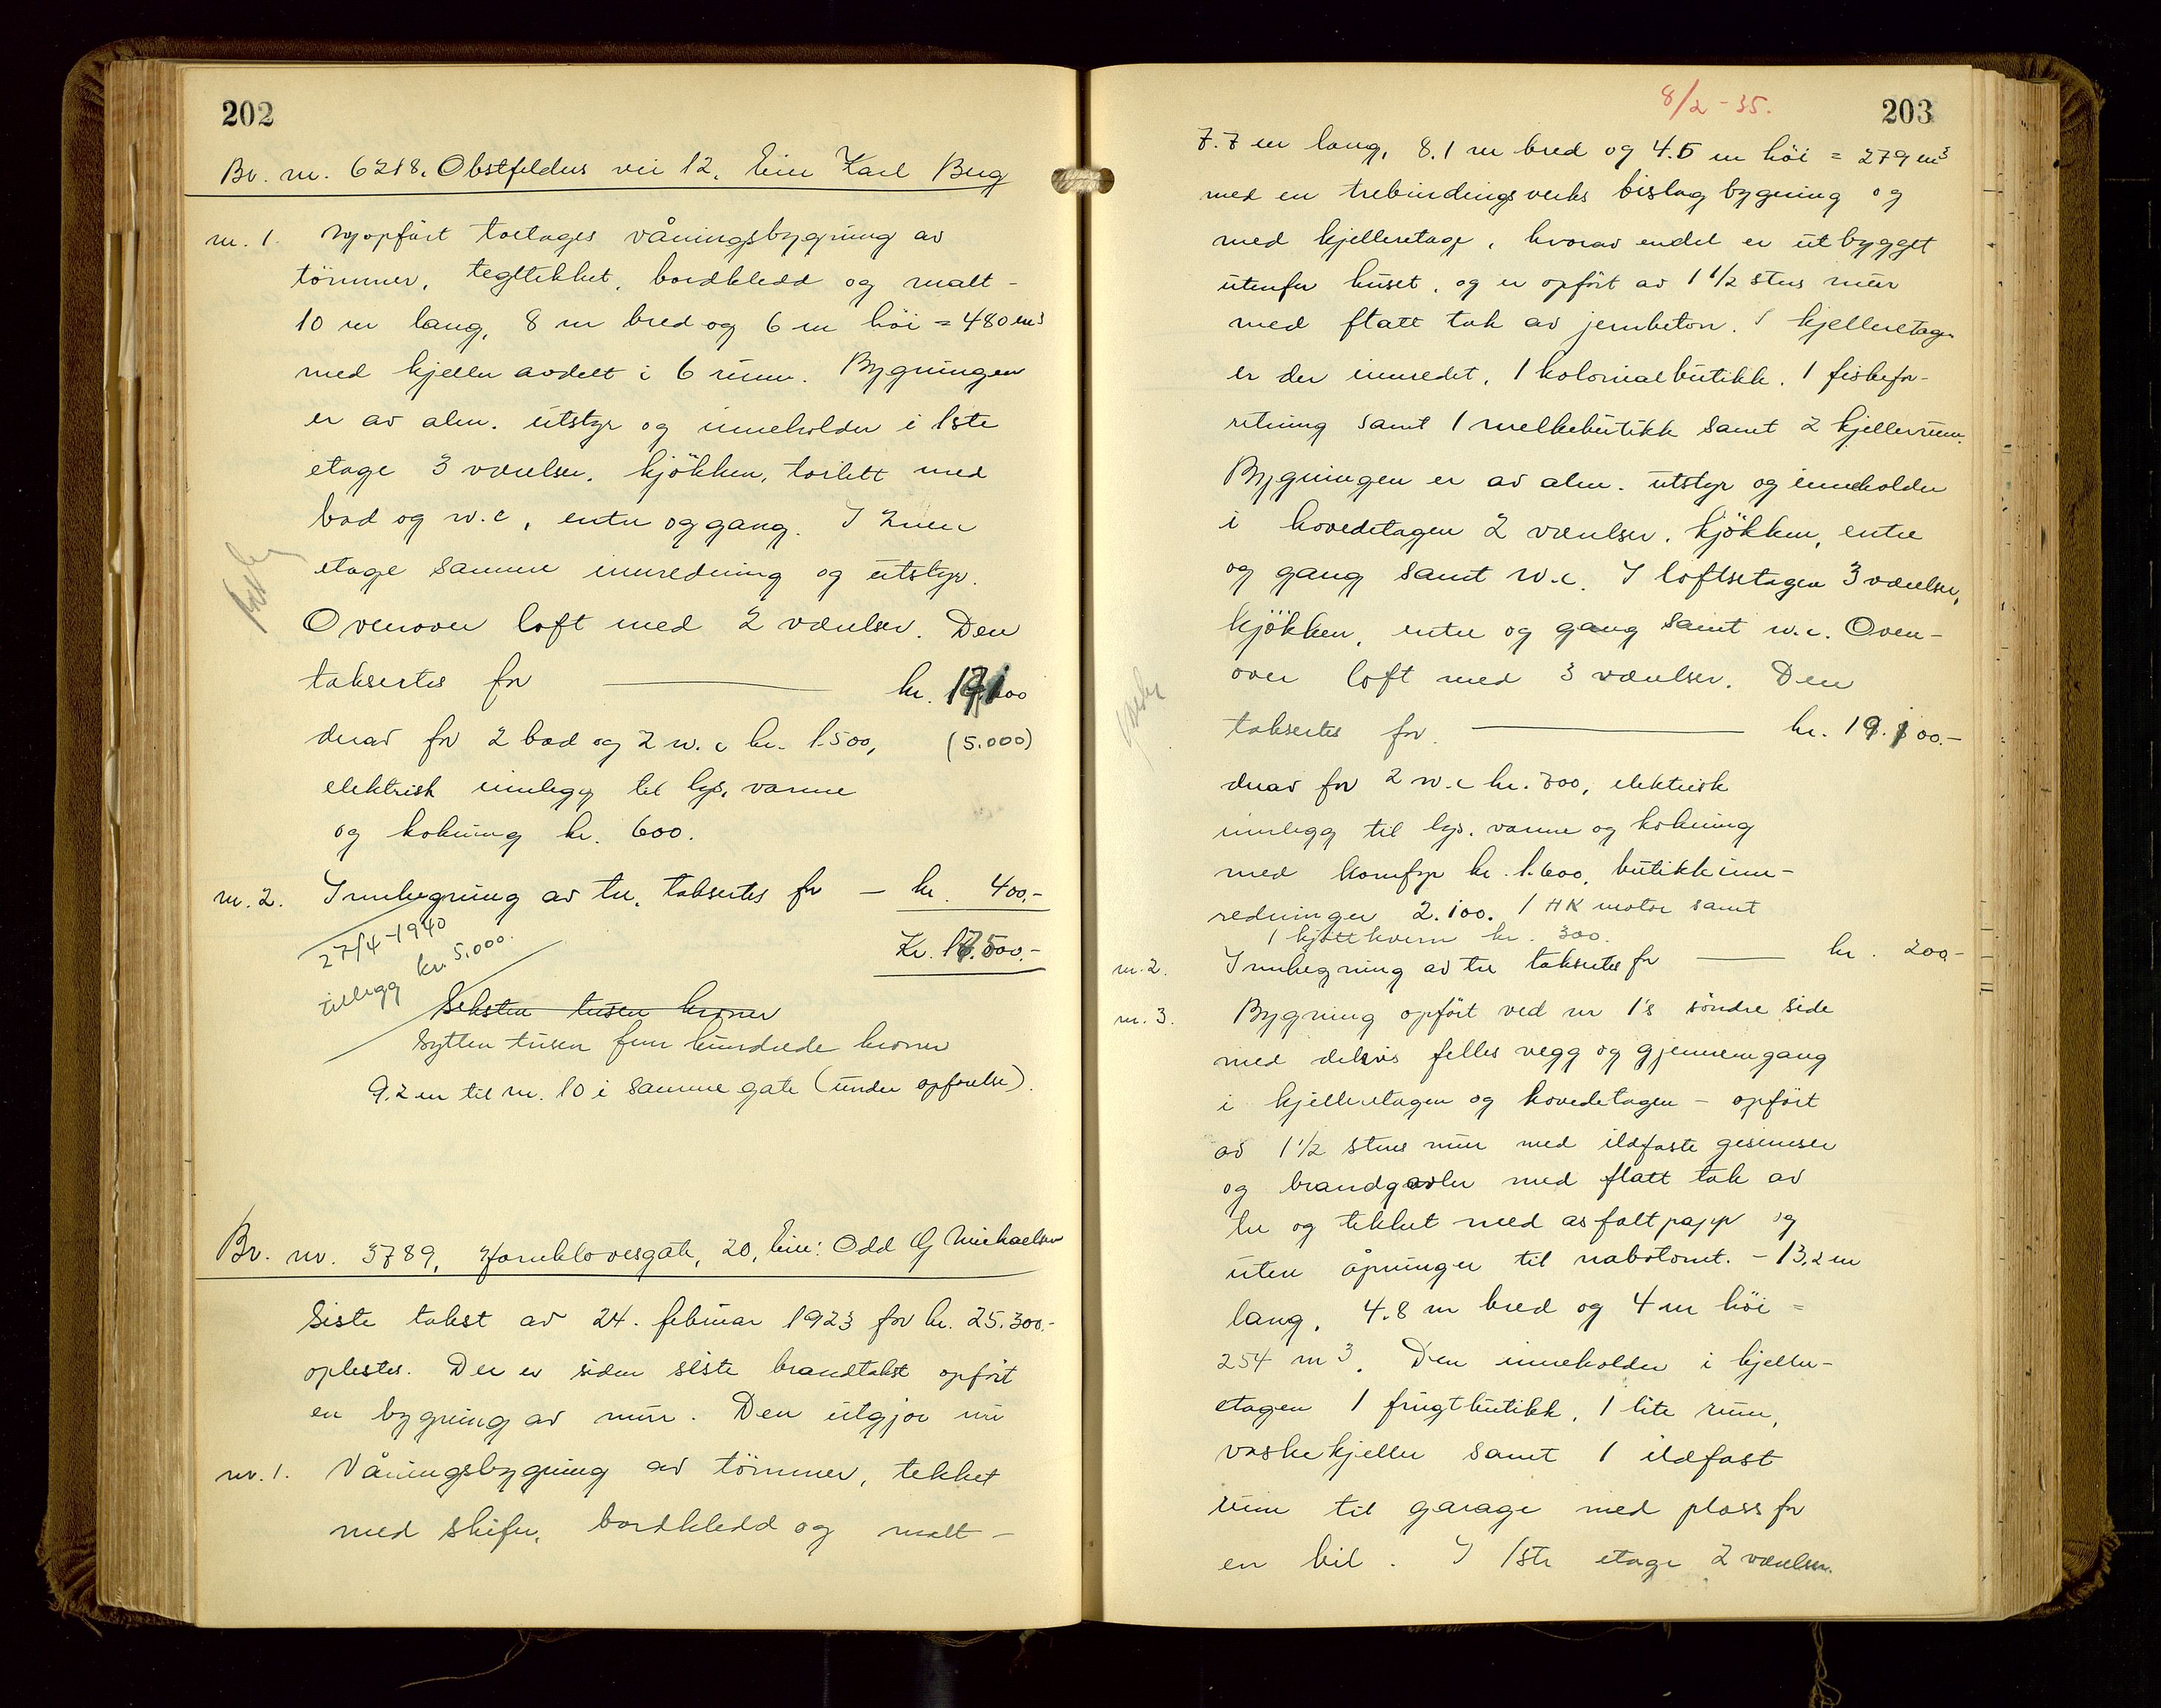 202
Br. nr. 6218. Obstfelders vei 12. Eier Karl Berg
nr. 1. Nyopført toetages våningsbygning av
tömmer, tegltekket, bordkledd og malt -
10 m lang, 8 m bred og 6 m höi = 480 m³
med kjeller avdelt i 6 rum. Bygningen
er av alm. utstyr og inneholder i 1ste
etage 3 værelser, kjökken, toilett med
bad og w.c, entre og gang. I 2nen
etage samme innredning og utstyr.
Ovenover loft med 2 værelser. Den
taksertes for kr. 17.100
derav for 2 bad og 2 w.c kr. 1.500, (5.000)
elektrisk innlegg til lys, varme
og kokning kr. 600.
nr. 2. Innhegning av tre, taksertes for - kr. 400.-
27/4-1940
tillegg kr. 5.000.
Kr. 17.500.-
Seksten tusen kroner
Sytten tusen fem hundrede kroner
9.2 m til nr. 10 i samme gate (under opførelse).
Br. nr. 3789, Harekløvesgate, 20, Eier: Odd G Michaelsen
Siste takst av 24. februar 1923 for kr. 25.300.-
oplestes. Der er siden siste brandtakst opført
en bygning av mur. Den utgjør nu
nr. 1. Våningsbygning av tömmer, tekket
med skifer, bordkledd og malt -
8/2-35.
203
7.7 m lang, 8.1 m bred og 4.5 m höi = 279 m³
med en trebindingsverks bislag bygning og
med kjelleretage, hvorav endel er utbygget
utenfor huset, og er opfört av 1 1/2 stens mur
med flatt tak av jernbeton. I kjelleretagen
er der innredet, 1 kolonialbutikk, 1 fiskefor-
retning samt 1 melkebutikk samt 2 kjellerrum.
Bygningen er av alm. utstyr og inneholder
i hovedetagen 2 værelser, kjökken, entre
og gang samt w.c. I loftsetagen 3 værelser,
kjökken, entre og gang samt w.c. Oven-
over loft med 3 værelser. Den
taksertes for kr. 19.100.-
derav for 2 w.c kr. 700, elektrisk
innlegg til lys, varme og kokning
med komfyr kr. 1.600, butikkinn-
redninger 2.100. 1 HK motor samt
1 kjøttkvern kr. 300.
nr. 2. Innhegning av tre taksertes for kr. 200.-
nr. 3. Bygning opfört ved nr 1's söndre side
med delvis felles vegg og gjennemgang
i kjelleretagen og hovedetagen - opfört
av 1 1/2 stens mur med ildfaste gesimser
og brandgavler med flatt tak av
tre og tekket med asfaltpapp og
uten åpninger til nabotomt. - 13,2 m
lang, 4.8 m bred og 4 m höi =
254 m³. Den inneholder i kjeller-
etagen 1 frugtbutikk, 1 lite rum,
vaskekjeller samt 1 ildfast
rum til garage med plass for
en bil. I 1ste etage 2 værelser.